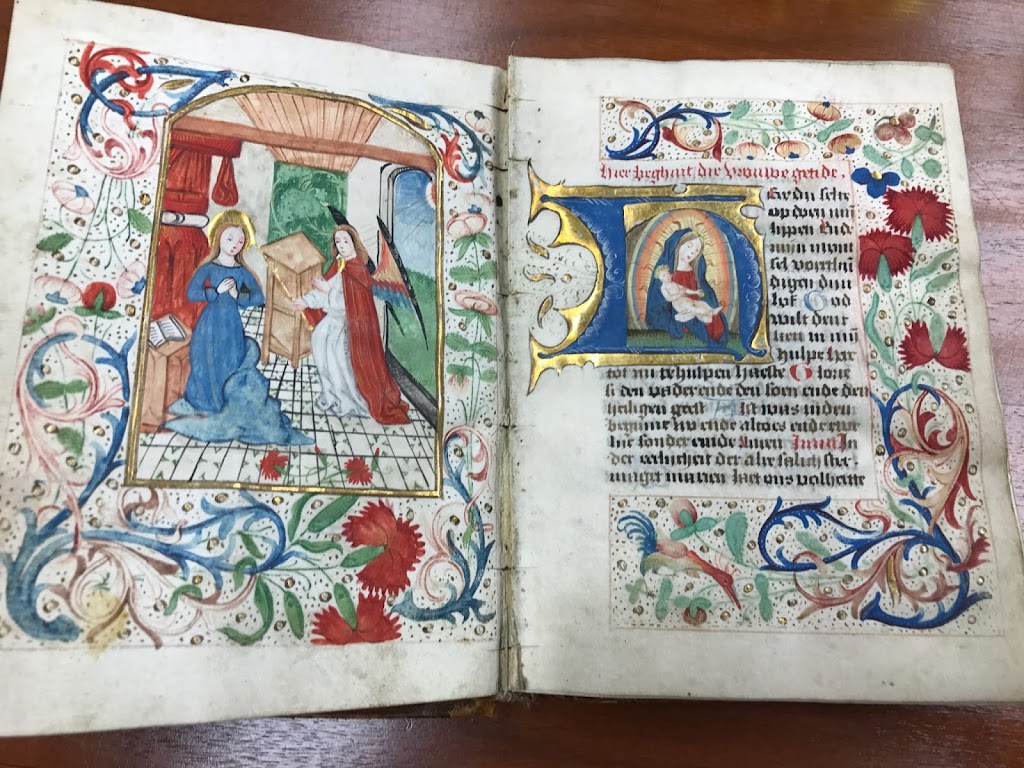 Hier beghint die vrouwe getide.
HEre du selte
op doen min
lippen End
mijn mont
sel voertkun
digen dijn
lof God
wilt denc
ken in mijn
hulpe Her
tot mi te hulpen haeste Glorie
si den vader ende den soen ende den
heiligen geest Alst was inden
beginne nu ende altoes ende ewe
lic sonder ende Amen Inuit In
der eerlicheit der alre salichster
maget marien laet ons